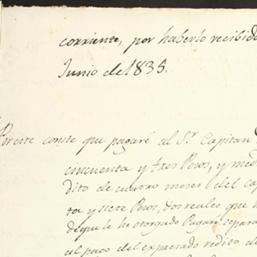 corriente, por haberlo recibido
Junio de 1835.
conste que pagaré al S.r Capitan
cincuenta y tres Pesos, y med
dito de cuatro meses del ca
ta y siete Pesos, dos reales que
le he otorgado Pagaré separa
al pago del expresado redito d